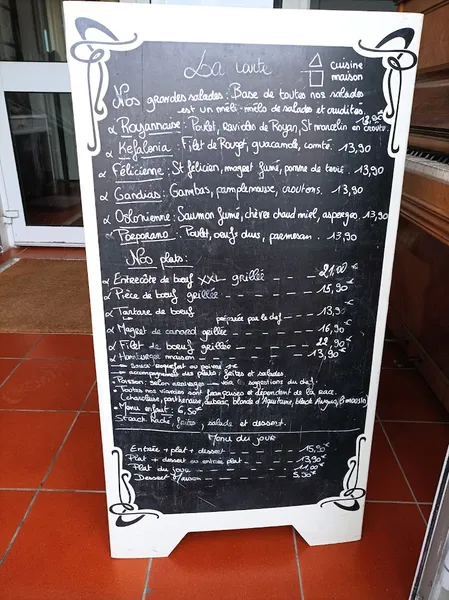 La carte
cuisine
maison
Nos grandes salades : Base de toutes nos salades
est un méli-mélo de salades et crudités.
Royannaise : Poulet, Raviolis de Royan, St marcelin en croute. 13,90
Kefalonia : Filet de Rouget, guacamole, comté. 13,90
Félicienne : St félicien, magret fumé, pomme de terre. 13,90
Gandias : Gambas, pamplemousse, croutons. 13,90
Oolonienne : Saumon fumé, chèvre chaud miel, asperges. 13,90
Porporano : Poulet, oeufs durs, parmesan. 13,90
Nos plats :
Entrecôte de boeuf XXL grillée 21,00€
Pièce de boeuf grillée 15,90€
Tartare de boeuf préparée par le chef 13,90€
Magret de canard grillée 16,90€
Filet de boeuf grillée 22,90€
Hamburger maison 13,90€
Sauce roquefort ou poivre 1€
accompagnements des plats : frites et salades.
Poisson : selon arrivages voir les suggestions du chef.
Toutes nos viandes sont françaises et dépendent de la race.
Charolaise, parthenaise, aubrac, blonde d'Aquitaine, black Angus, limousin
Menu enfant : 6,50€
Steack haché, frites, salade et dessert.
Menu du jour
Entrée + plat + dessert 15,90€
Plat + dessert ou entrée plat 13,90€
Plat du jour 11,00€
Dessert Maison 5,90€